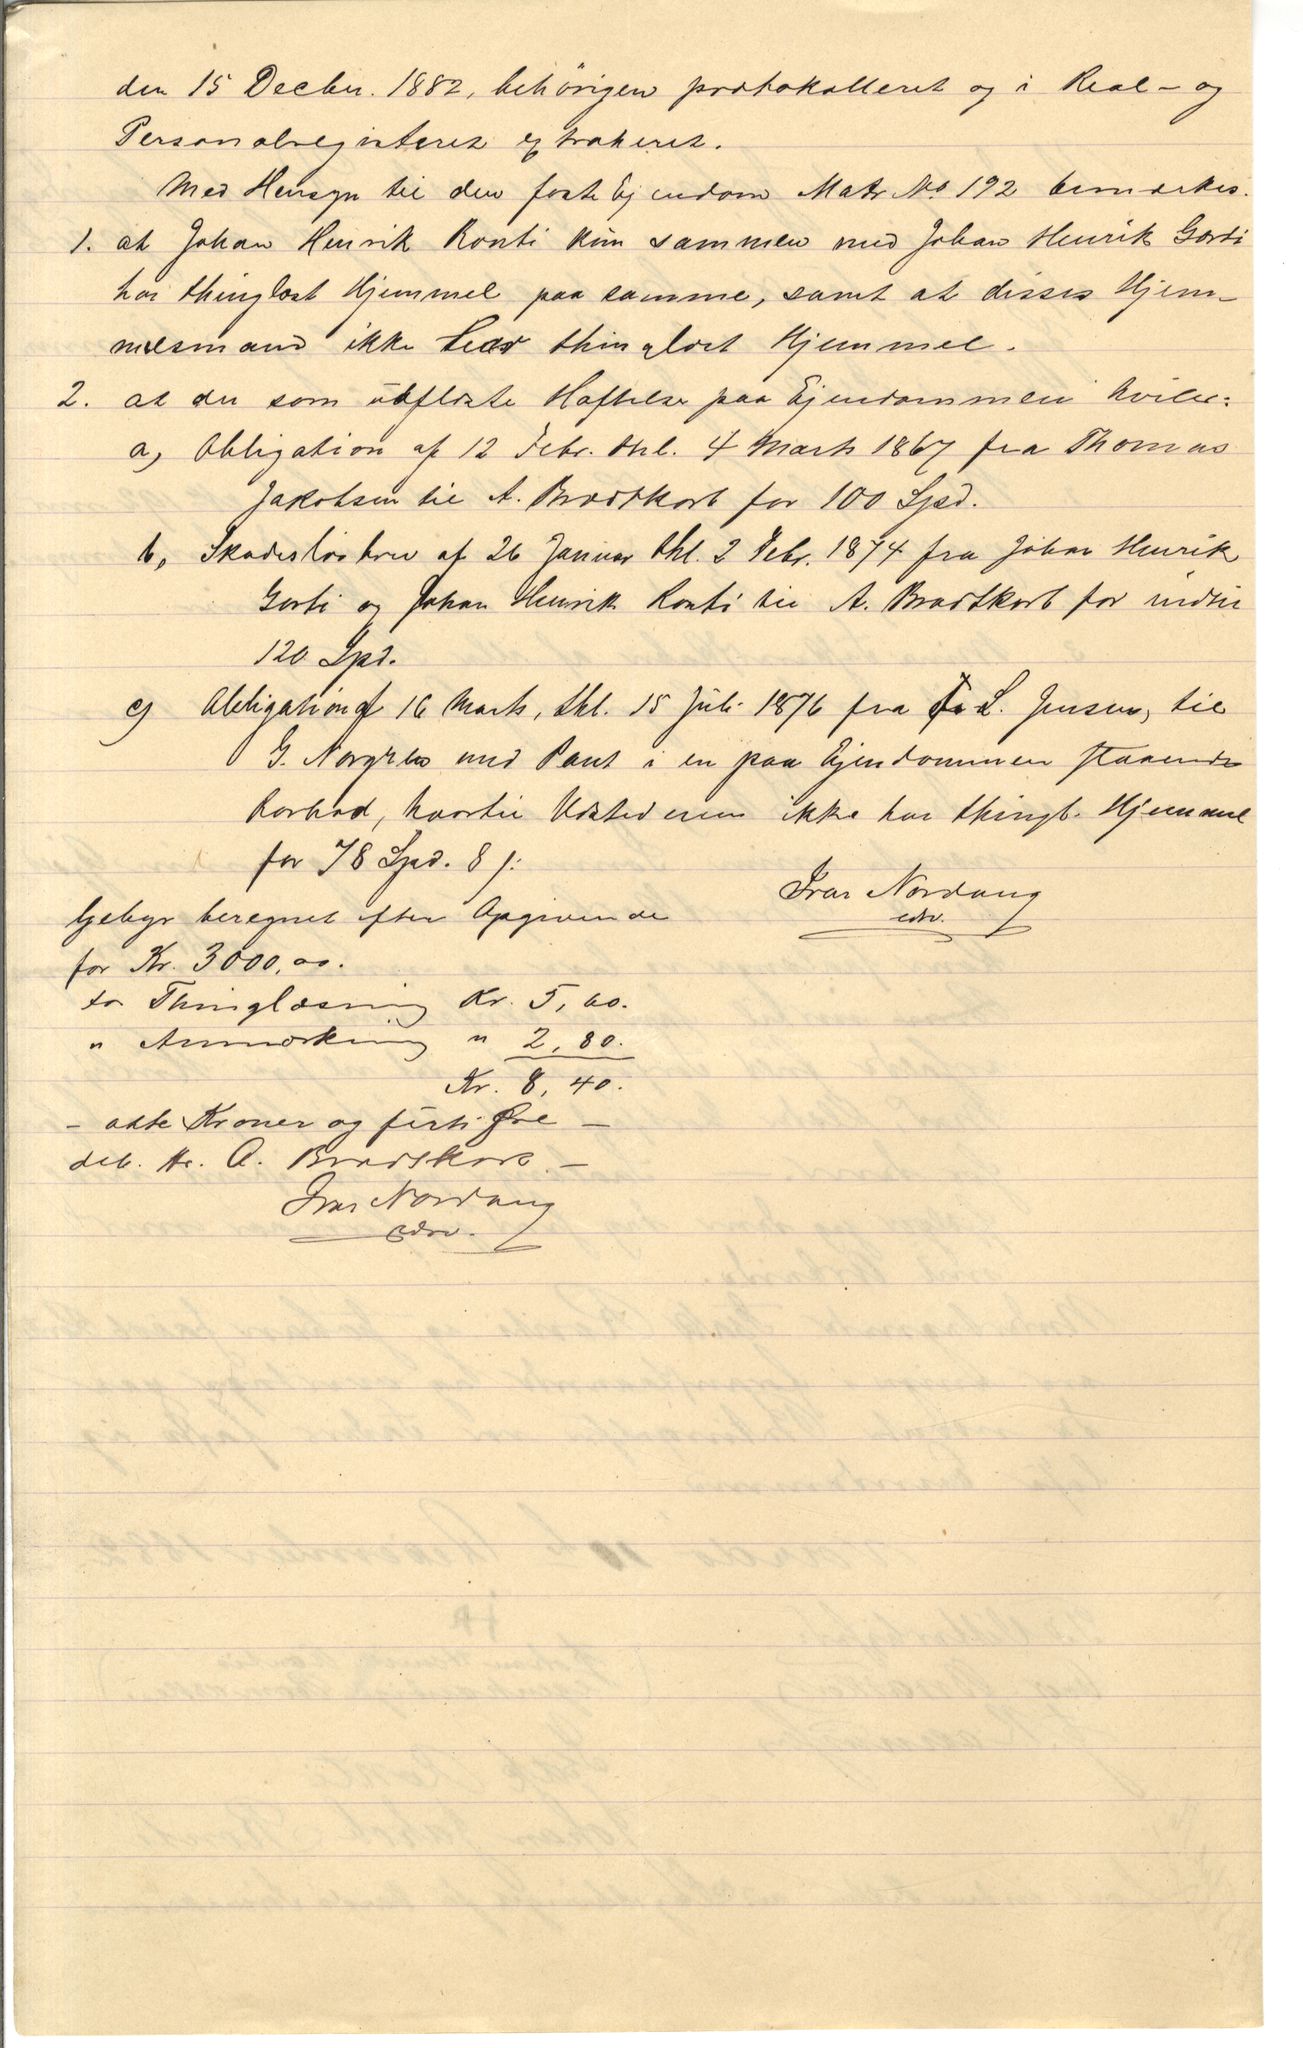 den 15 Decbr. 1882, behörigen protokolleret og i Real- og
Personalregisteret extraheret.
Med Hensyn til den faste Ejendom Matr No. 192 bemærkes.
1. at Johan Henrik Ronti kun sammen med Johan Henrik Gorti
har thinglæst Hjemmel paa samme, samt at disses Hjem-
melsmand ikke har thinglæst Hjemmel.
2. at der som uaflöste Hæftelse paa Ejendommen hviler:
a, Obligation af 12 Febr. thl. 4 Marts 1867 fra Thomas
Jakobsen til A. Brodtkorb for 100 Spd.
b, Skadeslösbrev af 26 Januar thl. 2 Febr. 1874 fra Johan Henrik
Gorti og Johan Henrik Ronti til A. Brodtkorb for indtil
120 Spd.
c, Obligation af 16 Marts, thl. 15 Juli 1876 fra L. Jensen, til
G. Norgren med Pant i en paa Ejendommen staaende
Rorbod, hvortil Udstederen ikke har thingl. Hjemmel
for 78 Spd. 8 s:
Ivar Nordang
edsv.
Gebyr beregnet efter Opgivende
for Kr. 3000,00.
for Thinglæsning Kr. 5,60.
" Anmærkning " 2,80.
Kr. 8,40.
- otte Kroner og firti Øre -
deb. Hr. A. Brodtkorb. -
Ivar Nordang
edsv.